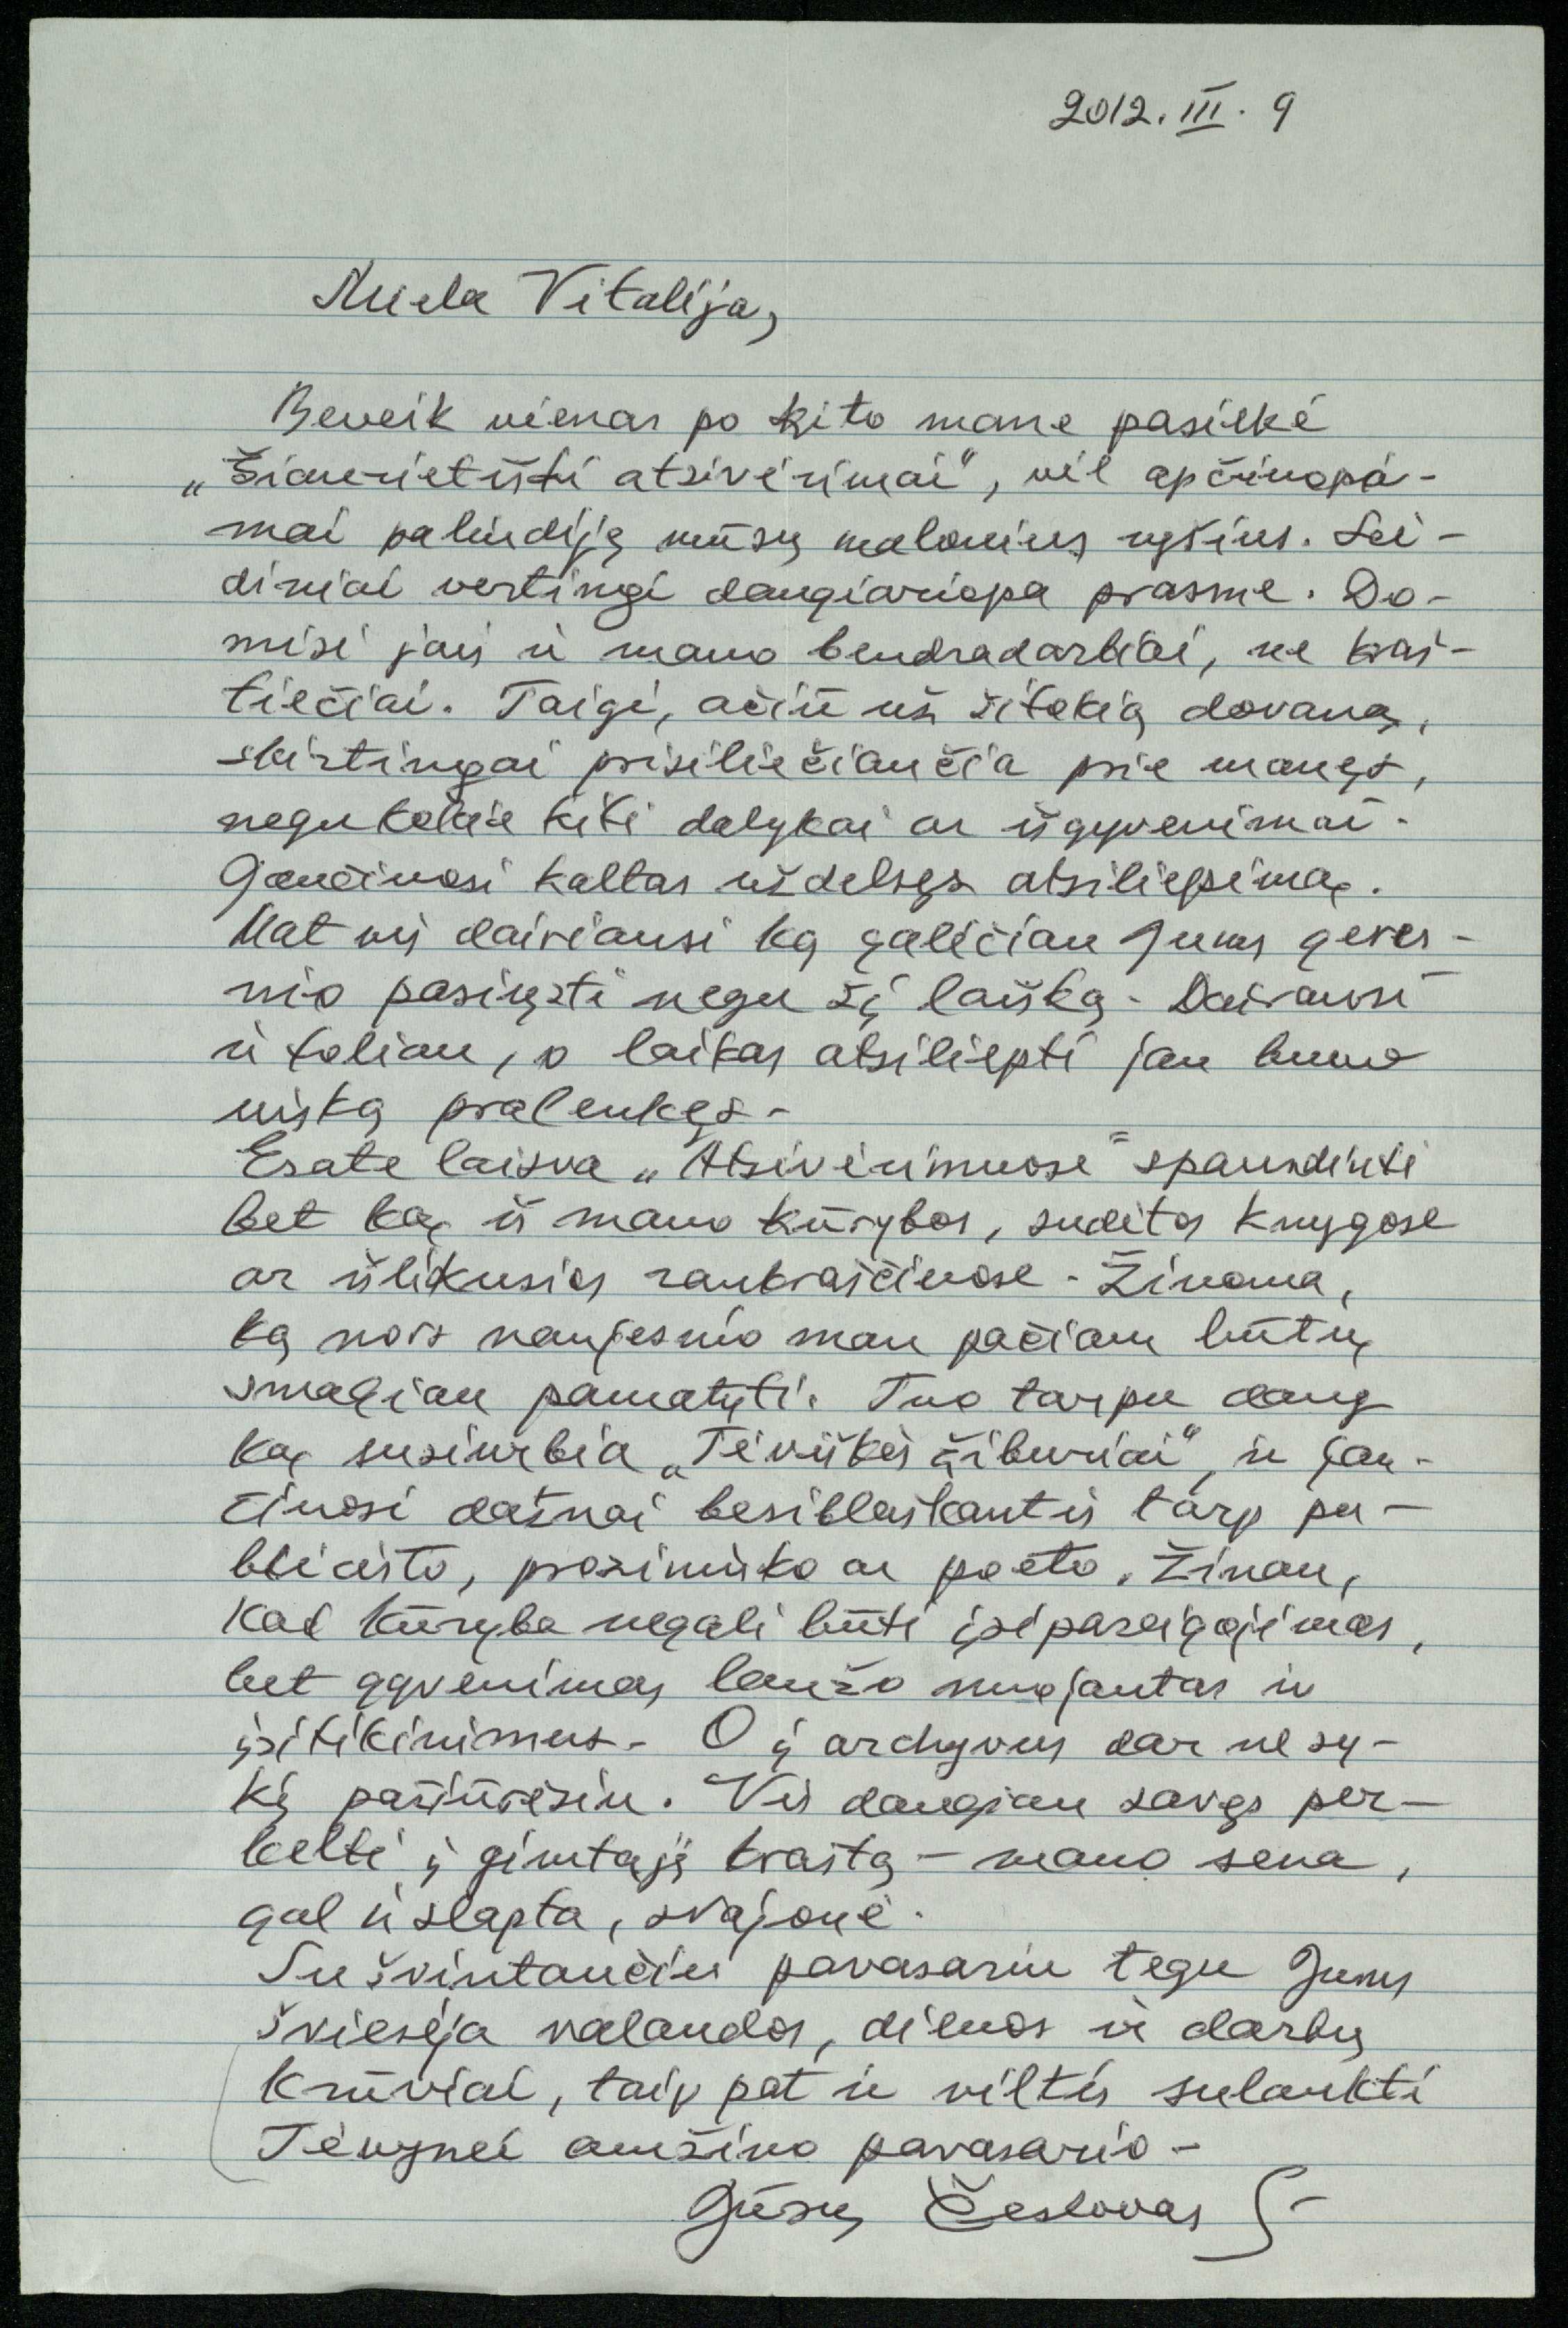 2012. III. 9
Miela Vitalija,
Beveik vienas po kito mane pasiekė
„Šiaurietiški atsivėrimai“, vėl apčiuopa-
mai paliudiję mūsų malonius ryšius. Lei-
diniai vertingi daugiariopa prasme. Do-
misi jais ir mano bendradarbiai, ne kraš-
tiečiai. Taigi, ačiū už šitokią dovaną,
skirtingai prisiliečiančia prie manęs,
negu kokie kiti dalykai ar išgyvenimai.
Jaučiuosi kaltas uždelsęs atsiliepimą.
Mat vis dairiausi ką galėčiau Jums geres-
nio pasiųsti negu šį laišką. Dairausi
ir toliau, o laikas atsiliepti jau buvo
viską pralenkęs -
Esate laisva „Atsivėrimuose“ spausdinti
bet ką iš mano kūrybos, sudėtos knygose
ar išlikusios rankraščiuose. Žinoma,
ką nors naujesnio man pačiam būtų
smagiau pamatyti. Tuo tarpu daug
ką susiurbia „Tėviškės žiburiai“, ir jau-
čiuosi dažnai besiblaškantis tarp pu-
blicisto, prozininko ar poeto. Žinau,
kad kūryba negali būti įsipareigojimas,
bet gyvenimas laužo nuojautas ir
įsitikinimus. O į archyvus dar ne sy-
kį pažiūrėsiu. Vis daugiau savęs per-
kelti į gimtąjį kraštą - mano sena,
gal ir slapta, svajonė.
Su švintančiu pavasariu tegu Jums
šviesėja valandos, dienos ir darbų
krūviai, taip pat ir viltis sulaukti
Tėvynei amžino pavasario -
Jūsų Česlovas S-